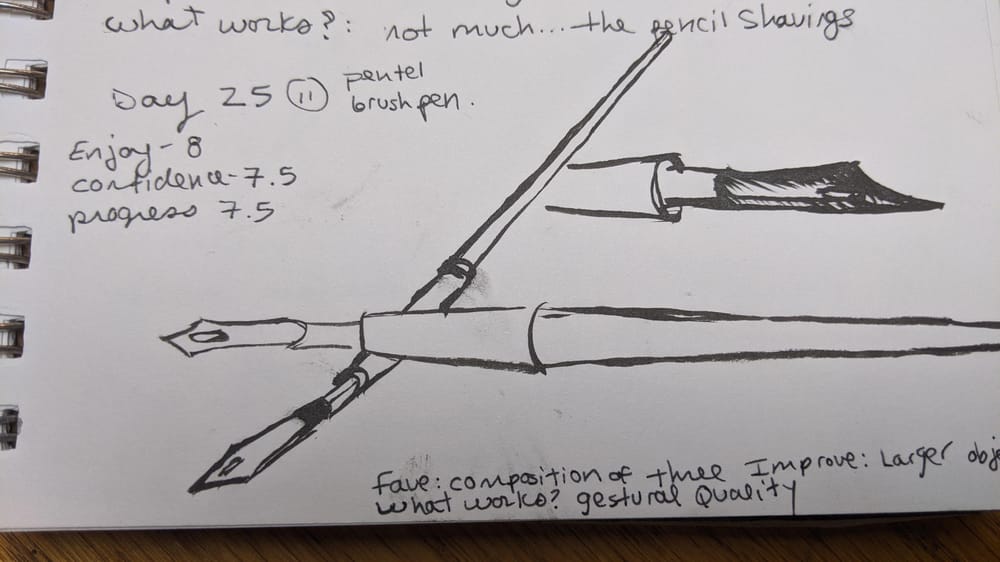 what works?: not much... the pencil shavings
Day 25 11 pentel
brush pen.
Enjoy - 8
confidence - 7.5
progress 7.5
Fave: composition of three Improve: Larger obje
what works? gestural Quality